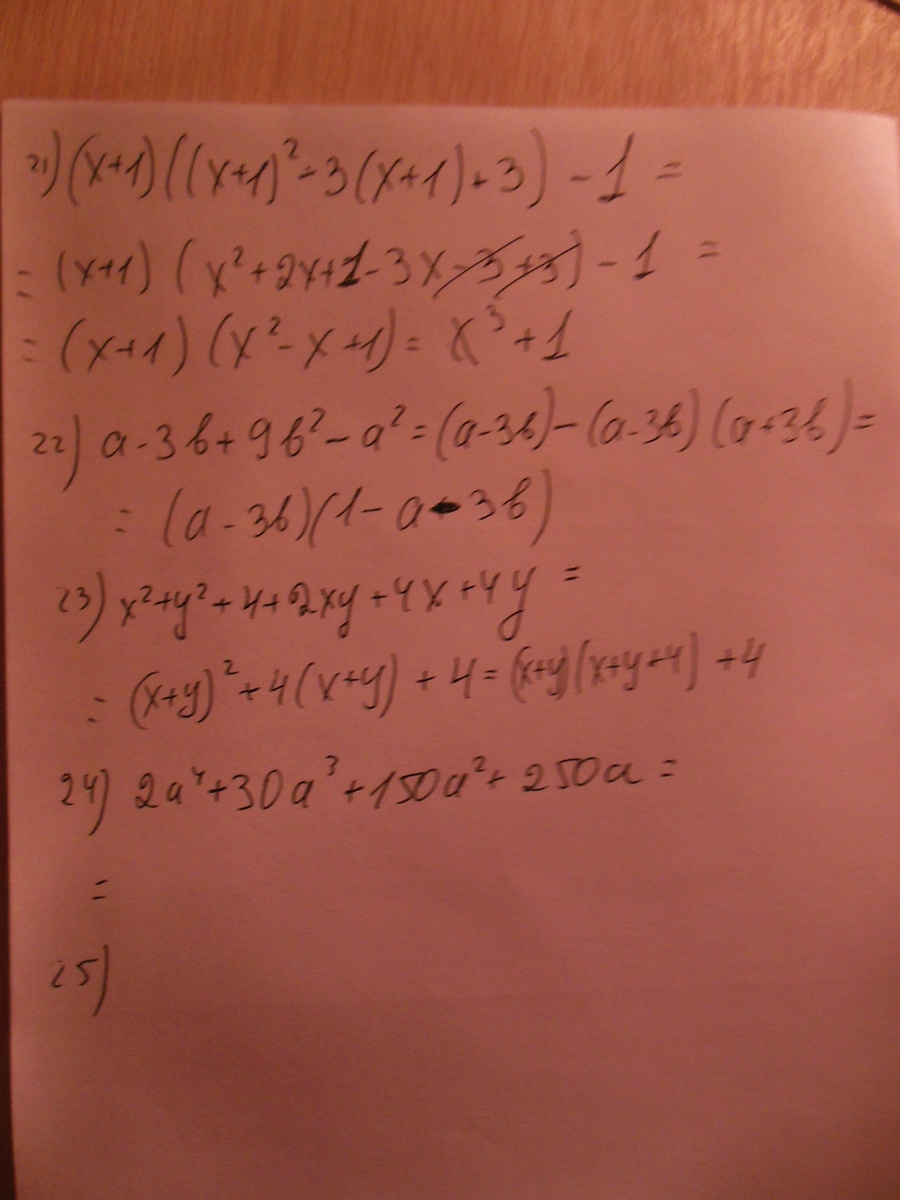 21) (x+1)((x+1)²-3(x+1)+3)-1=
= (x+1) (x²+2x+1-3x-3+3)-1 =
= (x+1) (x²-x+1)= x³+1
22) a-3b+9b²-a²=(a-3b)-(a-3b)(a+3b)=
= (a-3b)(1-a-3b)
23) x²+y²+4+2xy+4x+4y =
= (x+y)²+4(x+y)+4=(x+y)(x+y+4)+4
24) 2a⁴+30a³+150a²+250a=
=
25)